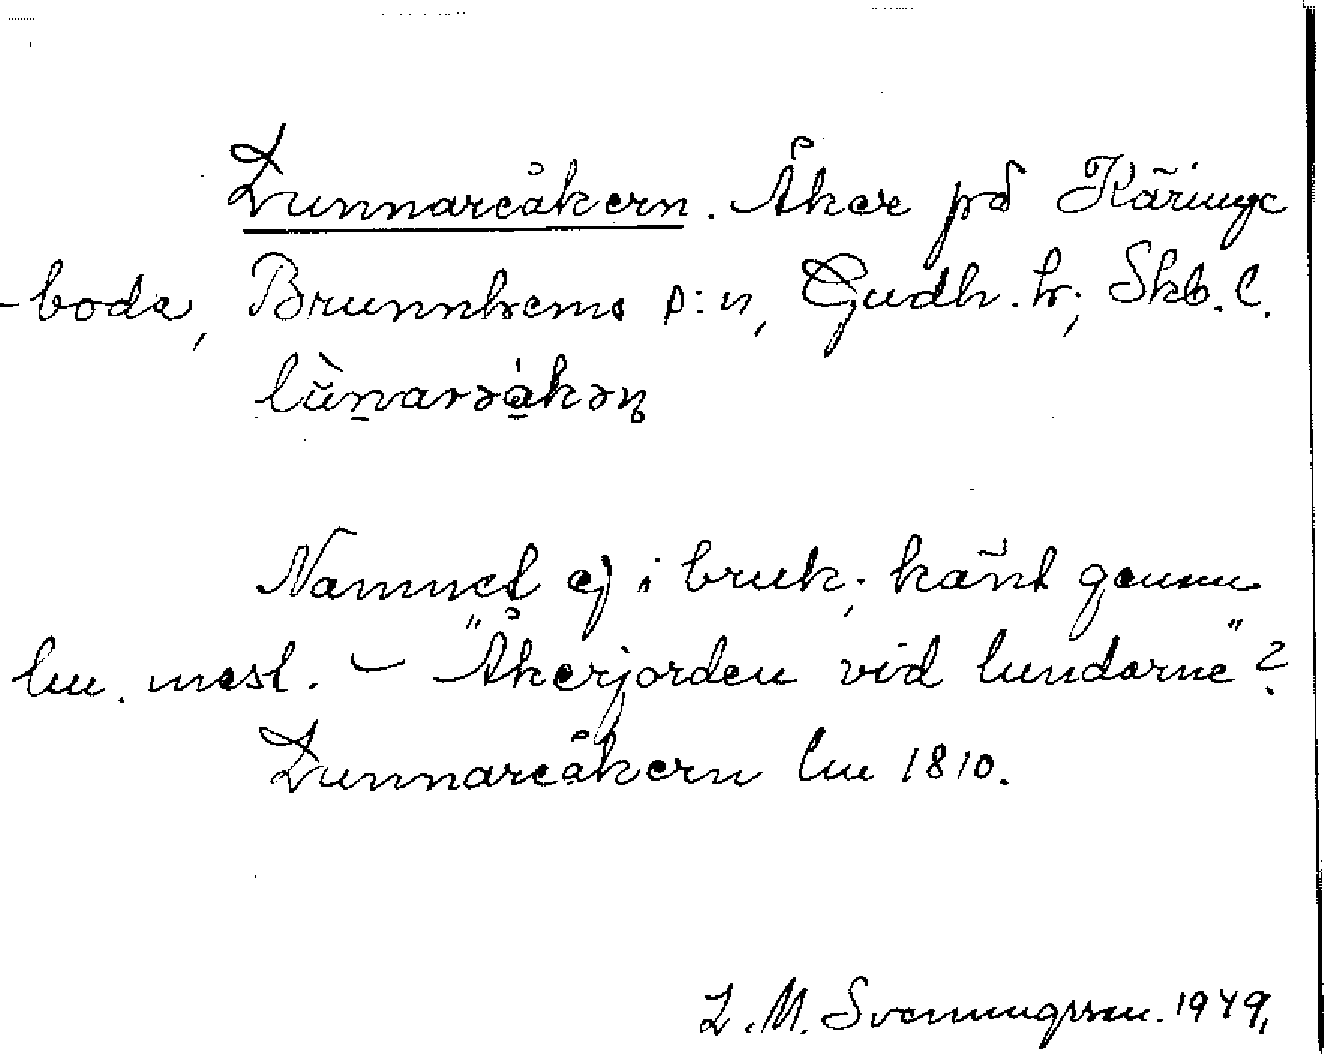 Lunnareåkern. Åker på Käringe
-boda, Brunnhems s:n, Gudh. hr; Skb. l.
lùnarəåkəɳ
Namnet ej i bruk; känt genom
lm. mest. – "Åkerjorden vid lundarne"?
Lunnareåkern lm 1810.
L. M. Svenungsson. 1949,